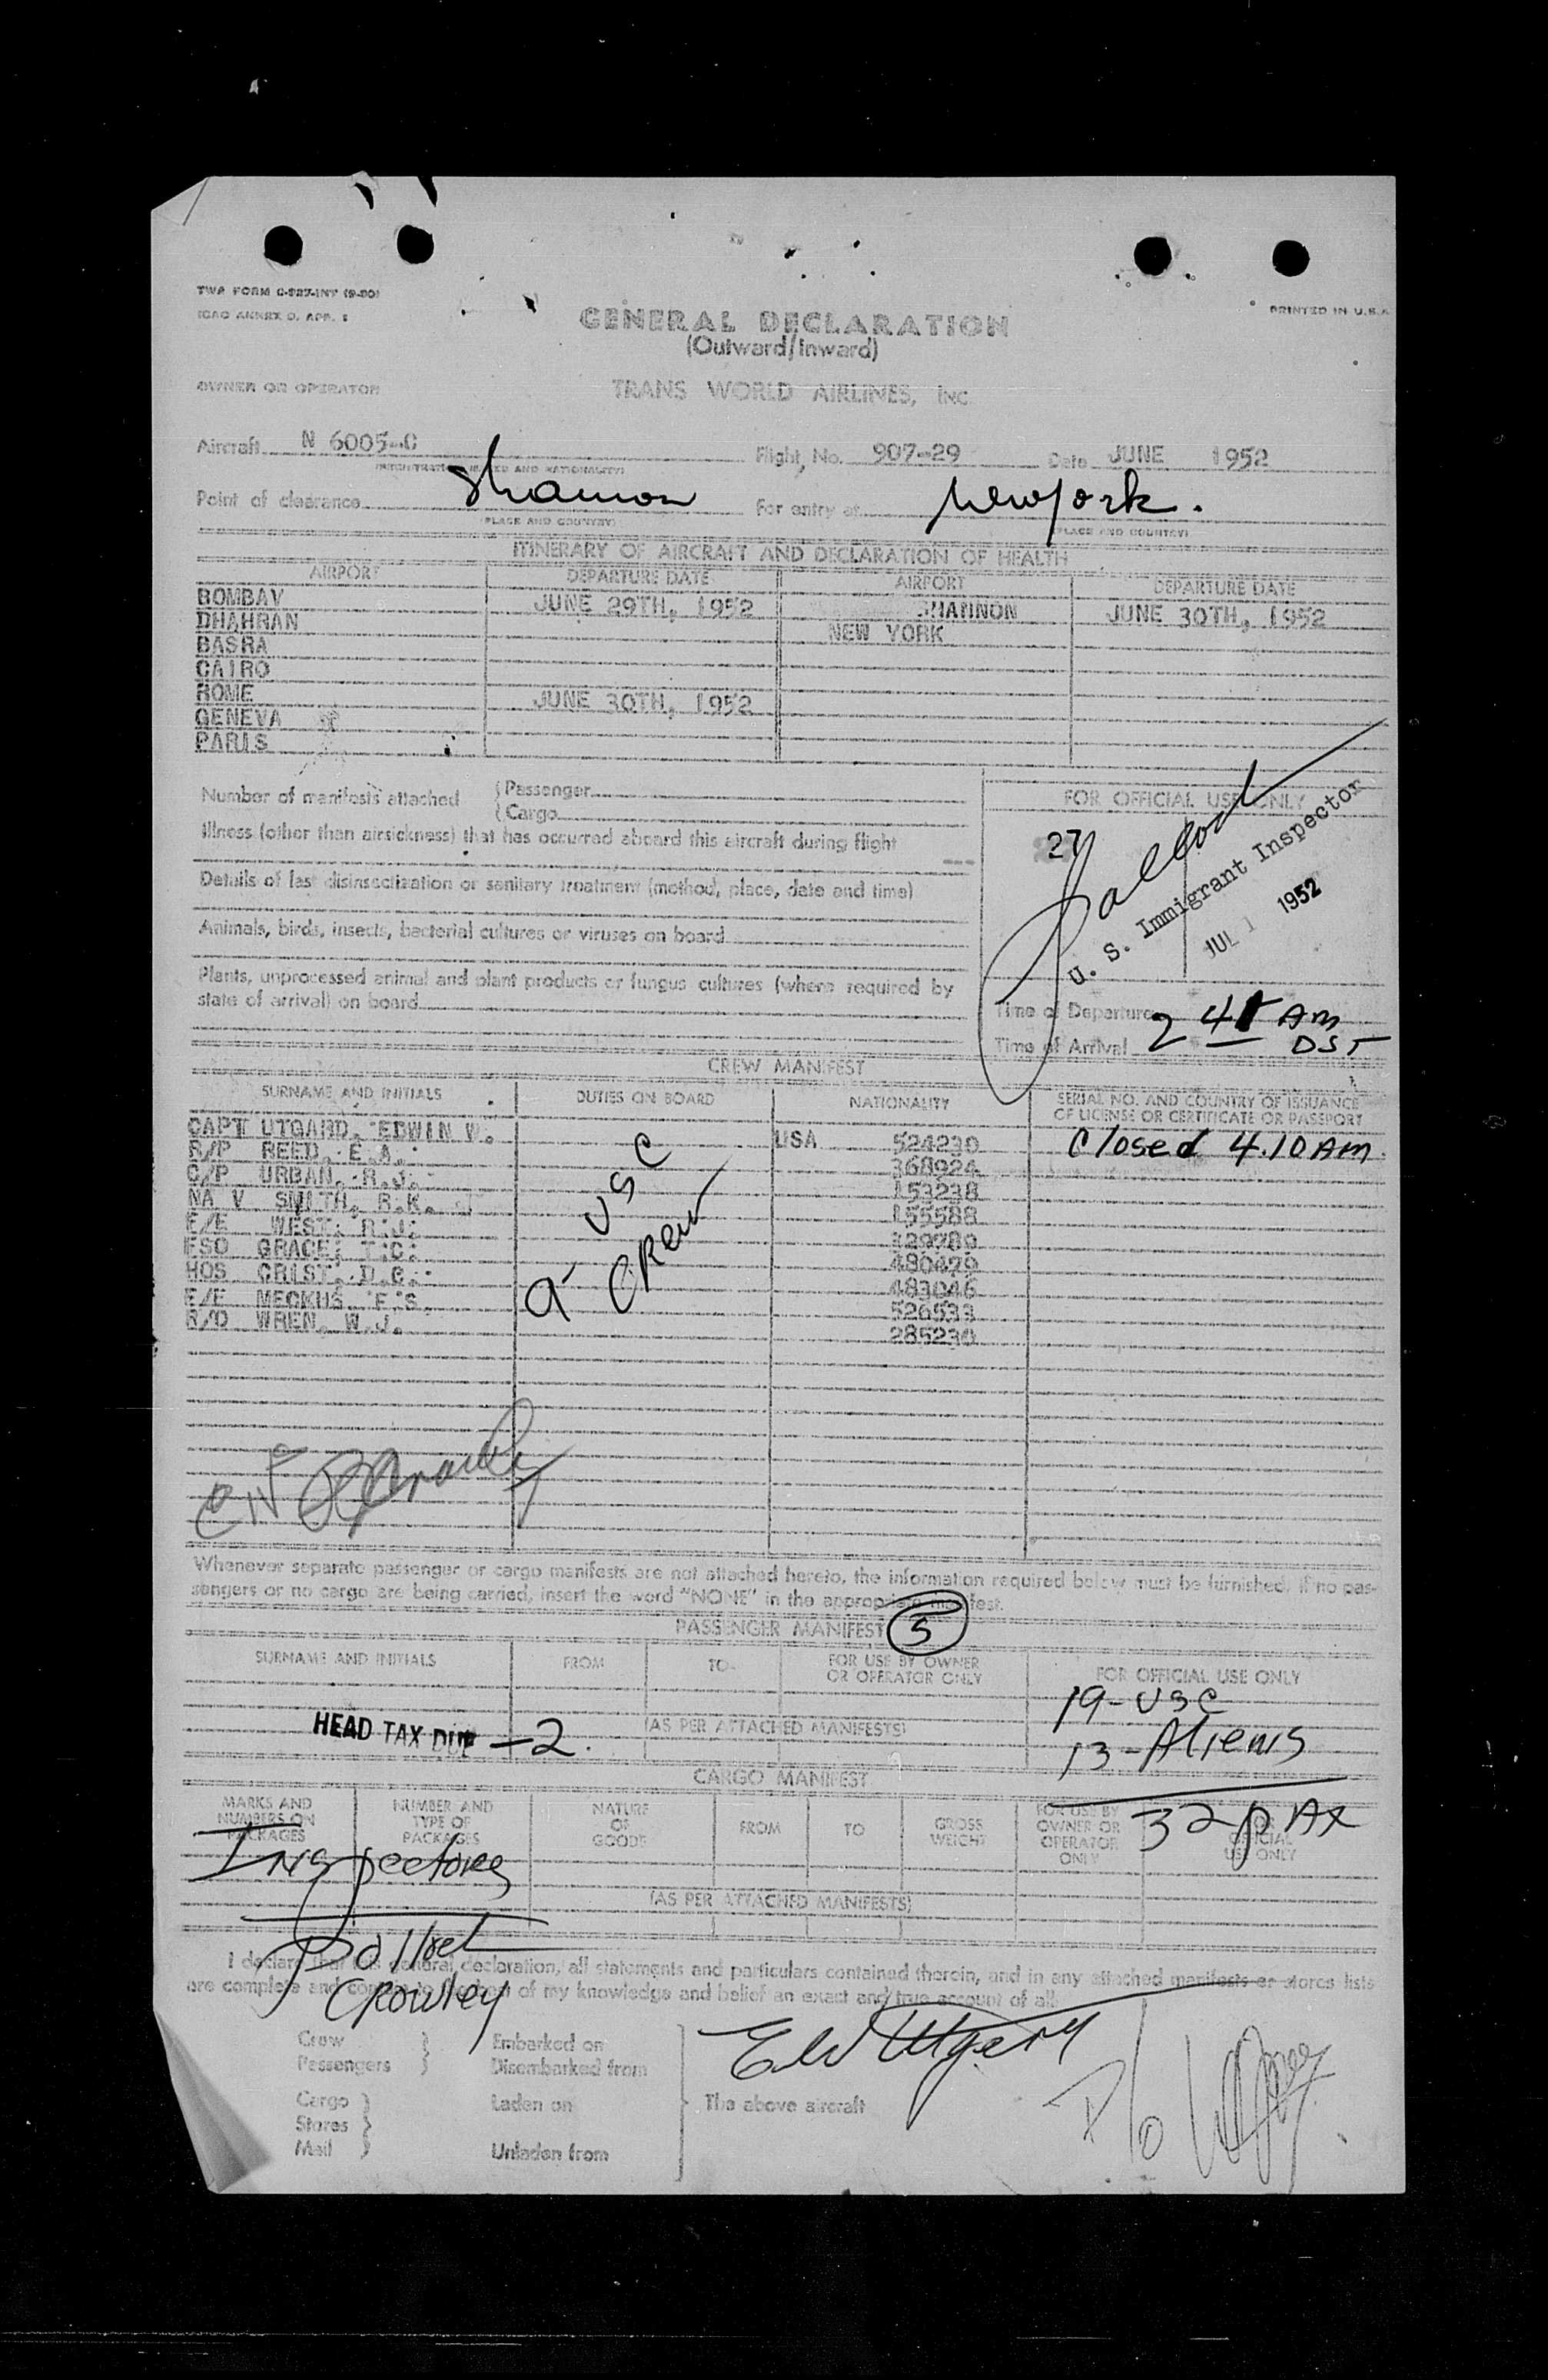 TWA FORM C-927-INT (9-50)
ICAO ANNEX D, APP. 1
PRINTED IN U.S.A
GENERAL DECLARATION
(Outward/Inward)
OWNER OR OPERATOR
TRANS WORLD AIRLINES, Inc
Aircraft N 6005-C Flight No. 907-29 Date JUNE 1952
Point of clearance Shannon For entry at New york.
(PLACE AND COUNTRY) (PLACE AND COUNTRY)
ITINERARY OF AIRCRAFT AND DECLARATION OF HEALTH
AIRPORT DEPARTURE DATE AIRPORT DEPARTURE DATE
BOMBAY JUNE 29TH, 1952 SHANNON JUNE 30TH, 1952
DHAHRAN NEW YORK
BASRA
CAIRO
ROME JUNE 30TH, 1952
GENEVA
PARIS
Number of manifests attached
Passenger
Cargo
Illness (other than airsickness) that has occurred aboard this aircraft during flight
Details of last disinsectization or sanitary treatment (method, place, date and time)
Animals, birds, insects, bacterial cultures or viruses on board
Plants, unprocessed animal and plant products or fungus cultures (where required by
state of arrival) on board
FOR OFFICIAL USE ONLY
27
U. S. Immigrant Inspector
JUL 1 1952
Time of Departure
Time of Arrival
Am
DST
CREW MANIFEST
SURNAME AND INITIALS DUTIES ON BOARD NATIONALITY SERIAL NO. AND COUNTRY OF ISSUANCE
OF LICENSE OR CERTIFICATE OR PASSPORT
CAPT UTGARD, EDWIN W. USA 524230 Closed 4.10 AM.
R/P REED, E.A. 368924
C/P URBAN, R.J. 153238
NAV SMITH, R.K. 155588
E/E WEST, R.J. 329789
FSO GRACE, T.C. 480479
HOS CRIST, D.C. 483046
E/E MECKUS, F.S. 526533
R/O WREN, W.J. 285230
9- USC
CREW
Whenever separate passenger or cargo manifests are not attached hereto, the information required below must be furnished. If no pas-
sengers or no cargo are being carried, insert the word "NONE" in the appropriate manifest.
PASSENGER MANIFEST 5
SURNAME AND INITIALS FROM TO FOR USE BY OWNER
OR OPERATOR ONLY
FOR OFFICIAL USE ONLY
19-USC
HEAD TAX DUE -2. (AS PER ATTACHED MANIFESTS)
13-Aliens
32 pAx
CARGO MANIFEST
MARKS AND
NUMBERS ON
PACKAGES
NUMBER AND
TYPE OF
PACKAGES
NATURE
OF
GOODS
FROM
TO
GROSS
WEIGHT
FOR USE BY
OWNER OR
OPERATOR
ONLY
FOR
OFFICIAL
USE ONLY
Inspectors
(AS PER ATTACHED MANIFESTS)
Crowley
I declare that this general declaration, all statements and particulars contained therein, and in any attached manifests or stores lists
are complete and correct to the best of my knowledge and belief an exact and true account of all:
Crew
Passengers
Embarked on
Disembarked from
Cargo
Stores
Mail
Laden on
Unladen from
The above aircraft
EW Utgard
P/o